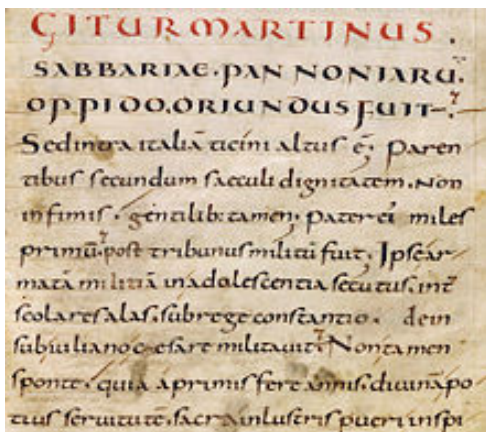 GITUR MARTINUS.
SABBARIAE. PANNONIARŪ.
OPPIDO. ORIUNDUS FUIT.
Sed intra italiā ticini altus ē. Paren
tibus secundum saeculi dignitatem. Non
infimis. gentilib: tamen. Pater ei miles
primū. post tribunus militū fuit. Ipse ar
matā militiā in adolescentia secutus. int
scolares alas. sub rege constantio. dein
sub iuliano cesare militavit. Non tamen
sponte. quia a primis fere annis. divinā po
tius servitutē. sacra inlustris pueri inspi